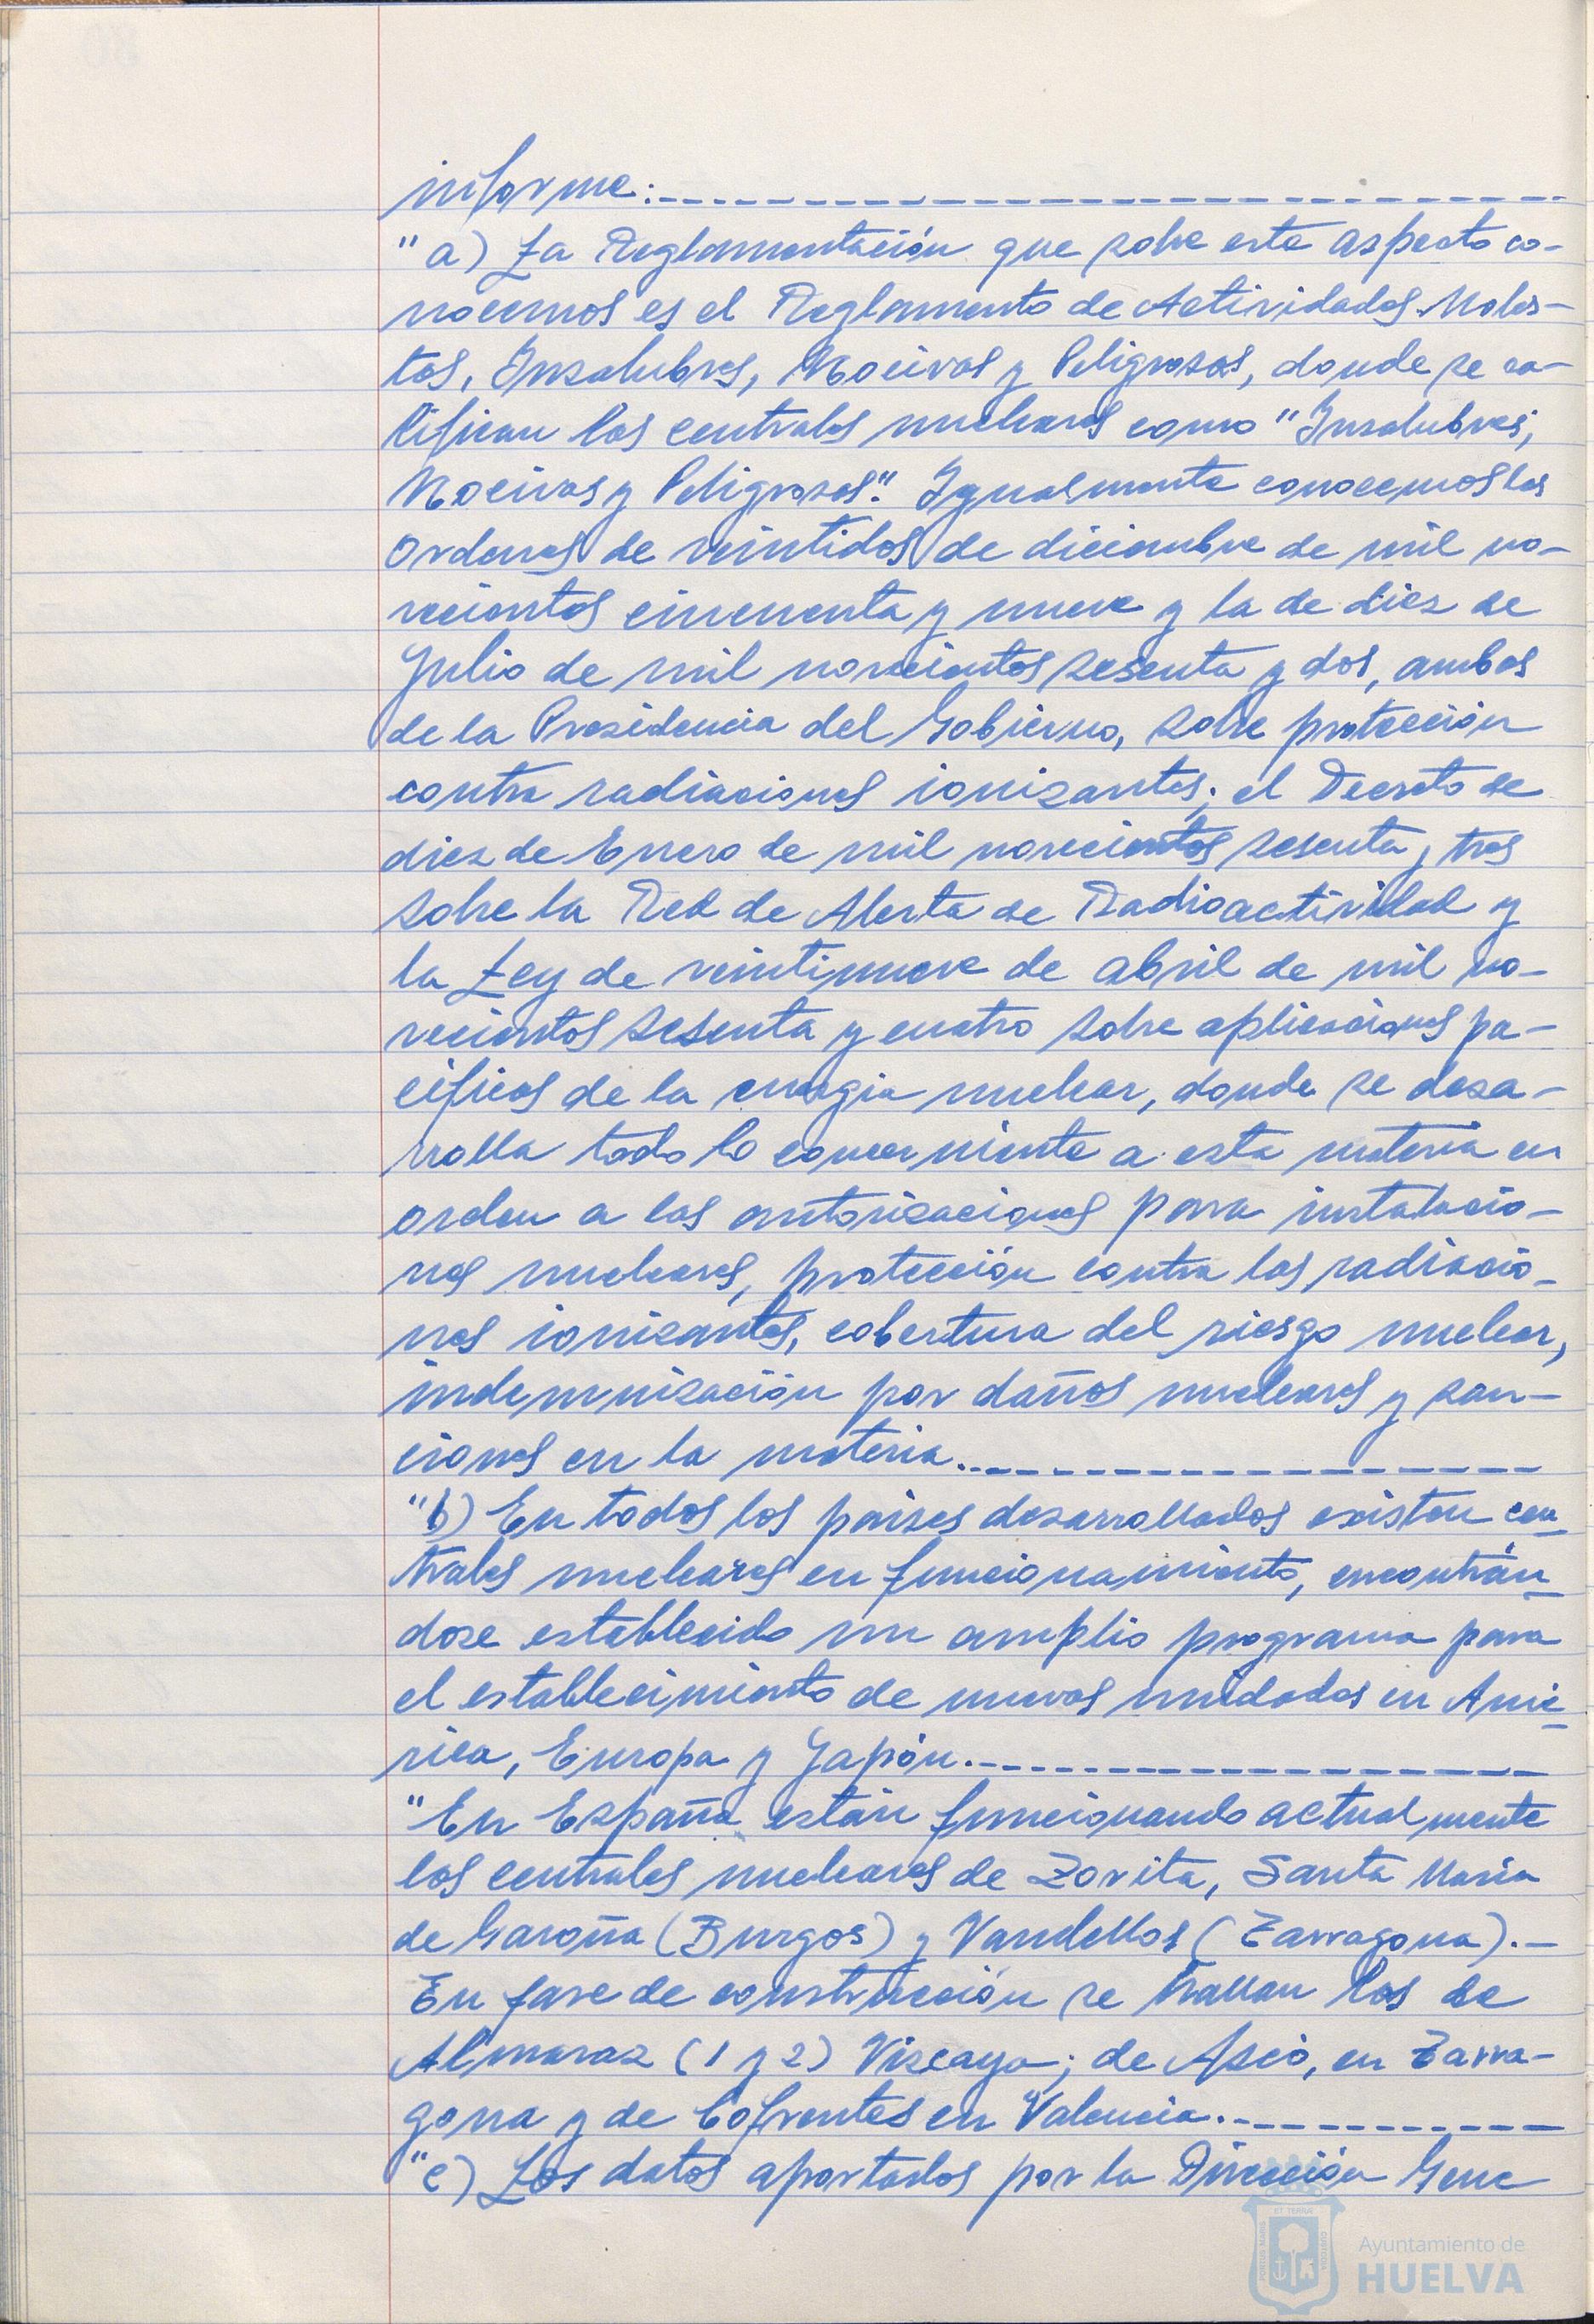 informe:
"a) La Reglamentación que sobre este aspecto co-
nocemos es el Reglamento de Actividades Moles-
tas, Insalubres, Nocivas y Peligrosas, donde se ca-
lifican las centrales nucleares como "Insalubres,
Nocivas y Peligrosas". Igualmente conocemos las
Ordenes de veintidos de diciembre de mil no-
vecientos cincuenta y nueve y la de diez de
Julio de mil novecientos sesenta y dos, ambas
de la Presidencia del Gobierno, sobre protección
contra radiaciones ionizantes; el Decreto de
diez de Enero de mil novecientos sesenta y tres
sobre la Red de Alerta de Radioactividad y
la Ley de veintinueve de abril de mil no-
vecientos sesenta y cuatro sobre aplicaciones pa-
cíficas de la energia nuclear, donde se desa-
rrolla todo lo concerniente a esta materia en
orden a las autorizaciones para instalacio-
nes nucleares, protección contra las radiacio-
nes ionizantes, cobertura del riesgo nuclear,
indemnización por daños nucleares y san-
ciones en la materia.
"b) En todos los paises desarrollados existen cen-
trales nucleares en funcionamiento, encontrán-
dose establecido un amplio programa para
el establecimiento de nuevas unidades en Amé-
rica, Europa y Japón.
"En España están funcionando actualmente
las centrales nucleares de Zorita, Santa María
de Garoña (Burgos) y Vandellos (Tarragona).-
En fase de construcción se hallan las de
Almaraz (1 y 2) Vizcaya; de Ascó, en Tarra-
gona y de Cofrentes en Valencia.
"c) Los datos aportados por la Dirección Gene
Ayuntamiento de
HUELVA